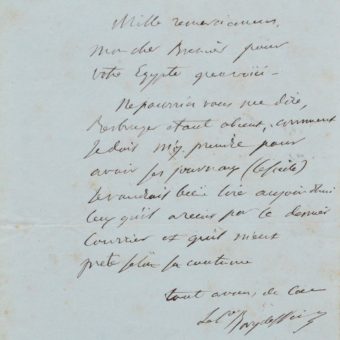 Mille remerciemens,
mon cher Bresnier pour
votre Egypte
Ne pourriez vous me dire,
Berbrugger étant absent, comment
Je dois m'y prendre pour
avoir ses journaux (le Siècle)
Je voudrais bien lire aujourd'hui
ceux qu'il a reçus par ce dernier
Courrier et qu'il
prete selon sa coutume
tout à vous, de
Le